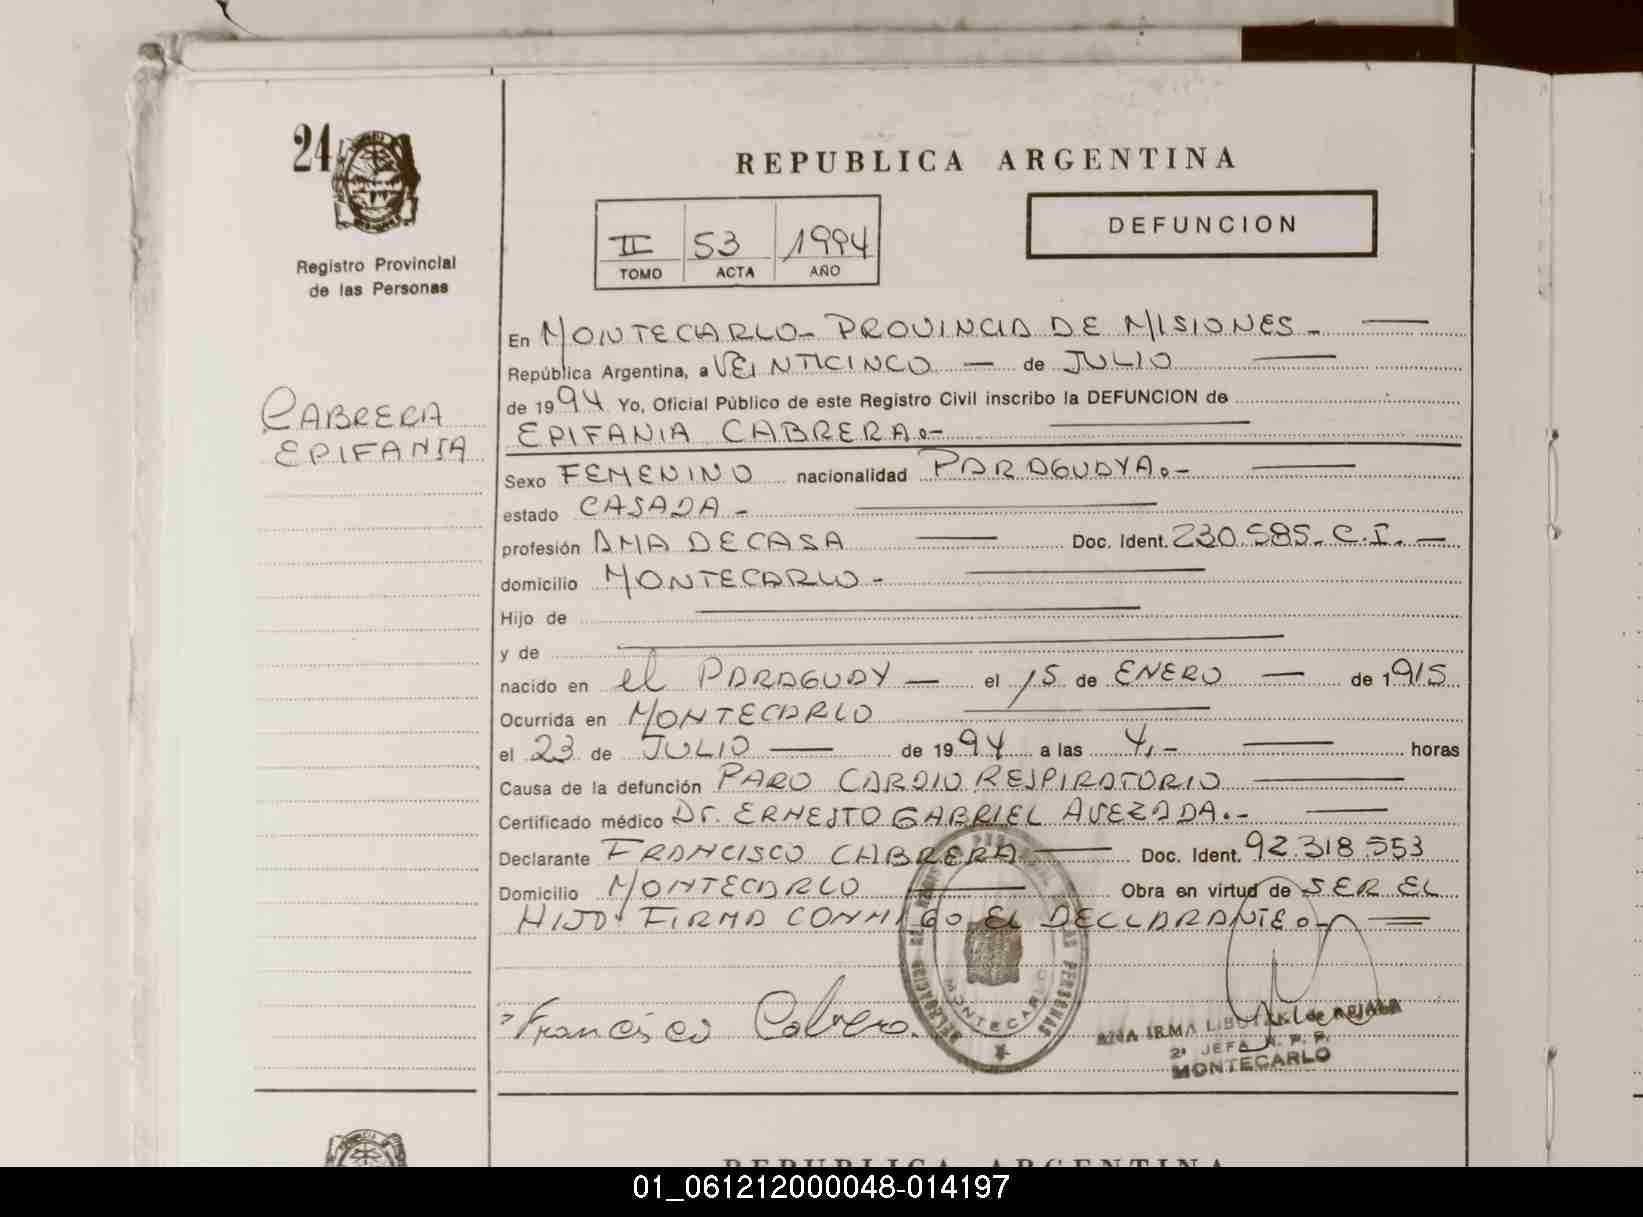 24
Registro Provincial
de las Personas
REPUBLICA ARGENTINA
II 53 1994
TOMO ACTA AÑO
DEFUNCION
CABRERA
EPIFANIA
En MONTECARLO- PROVINCIA DE MISIONES.-
República Argentina, a VEINTICINCO — de JULIO
de 1994 Yo, Oficial Público de este Registro Civil inscribo la DEFUNCION de
EPIFANIA CABRERA.-
Sexo FEMENINO nacionalidad PARAGUAYA.-
estado CASADA.-
profesión AMA DE CASA — Doc. Ident. 230.585. C.I. —
domicilio MONTECARLO.-
Hijo de
y de
nacido en el PARAGUAY — el 15 de ENERO — de 1915
Ocurrida en MONTECARLO
el 23 de JULIO — de 1994 a las 4.- — horas
Causa de la defunción PARO CARDIO RESPIRATORIO
Certificado médico Dr. ERNESTO GABRIEL AVEZADA.-
Declarante FRANCISCO CABRERA — Doc. Ident. 92.318.553
Domicilio MONTECARLO — Obra en virtud de SER EL
HIJO. FIRMA CONMIGO EL DECLARANTE.-
Francisco Cabrera.
DELEGACION PERSONAS
MONTECARLO
ANA IRMA
2ª JEFA R. P. P.
MONTECARLO
REPUBLICA ARGENTINA
01_061212000048-014197